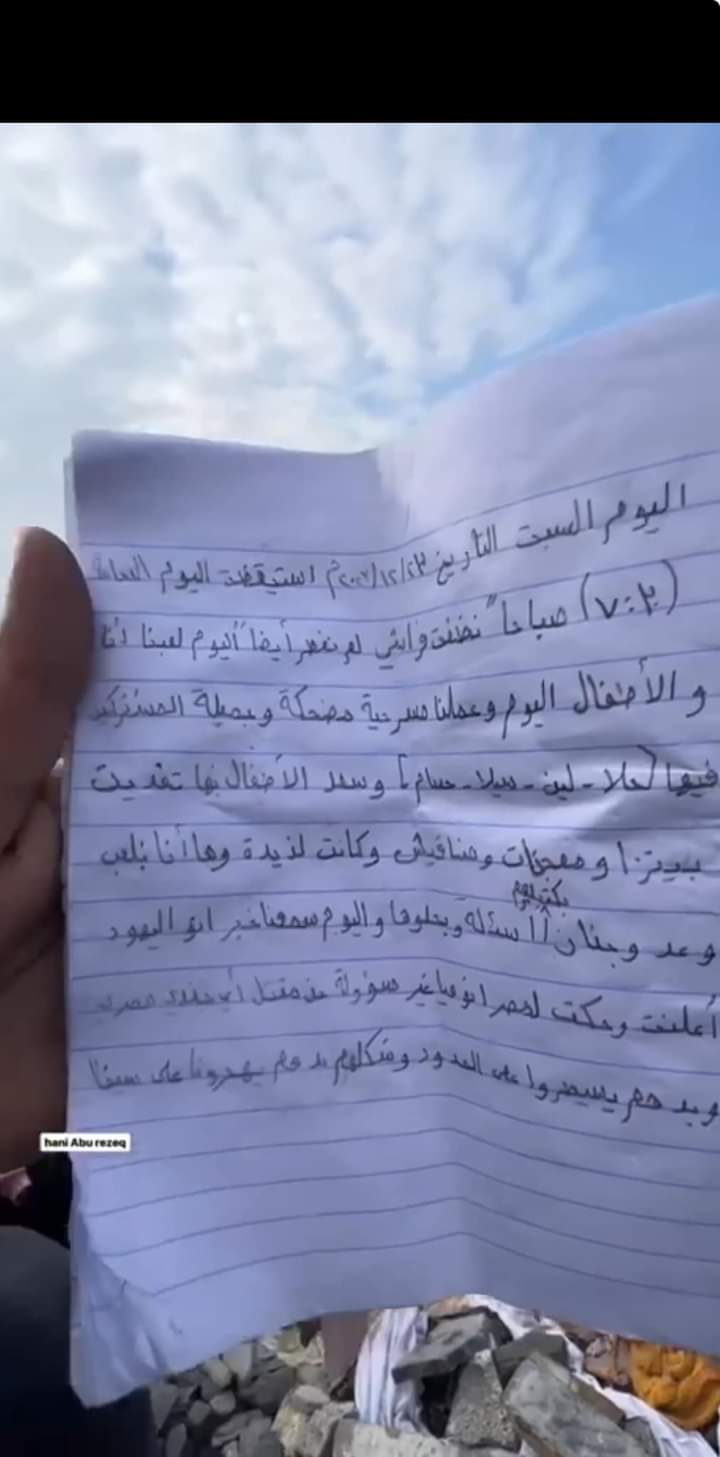 اليوم السبت التأريخ ٢٠٢٣/١٢/٢٣م استيقظت اليوم الساعة
(٧:٣٠) صباحاً نضفت وإنني لم نفطر أيضاً اليوم لعبنا أنا
و الأطفال اليوم وعملنا مسرحية مضحكة وجميلة المشتركين
فيها [حلا - لين - ميلا - حسام] وسعد الأطفال بها تغديت
بيتزا و معجنات ومنافيش وكانت لذيذة وها أنا بلعب
بكتبلهم
وعد وجنان أسئلة وبحلوها واليوم سمعنا خبر انو اليهود
أعلنت وحكت لمصر انو غير مسؤولة عن مقتل أي جندي مصري
وبدهم يسيطروا على الحدود وشكلهم بدهم يهجرونا على سينا
hani Abu rezeq